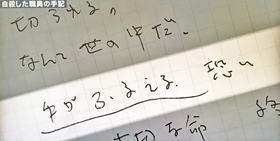 自殺した職員の手記
切れる。
なんて世の中だ、
手がふるえる、
恐い
大切な命